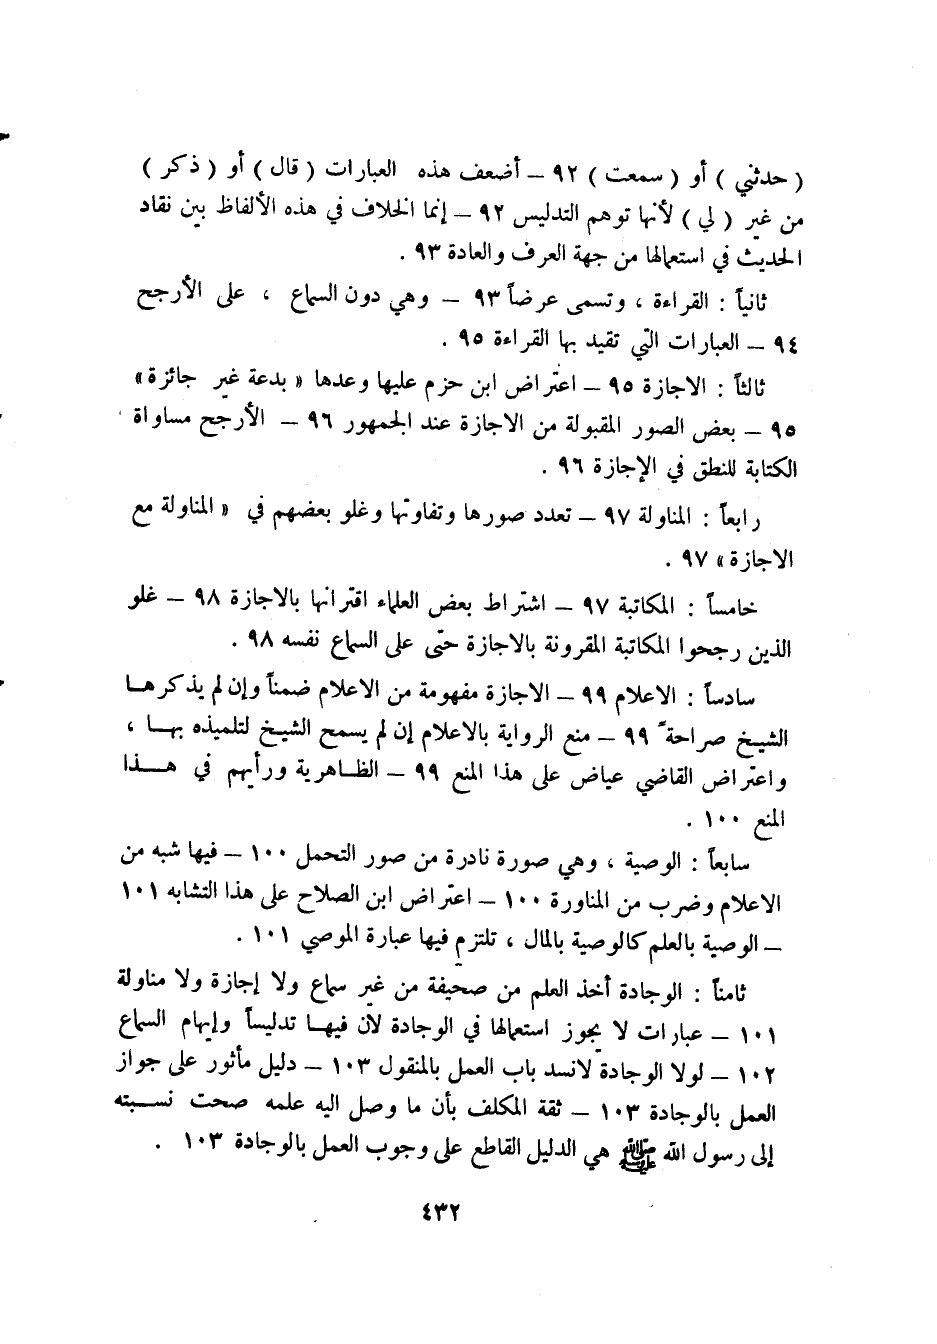 ( حدثني ) أو ( سمعت ) ٩٢ – أضعف هذه العبارات ( قال ) أو ( ذكر )
من غير ( لي ) لأنها توهم التدليس ٩٢ – إنما الخلاف في هذه الألفاظ بين نقاد
الحديث في استعمالها من جهة العرف والعادة ٩٣ .
ثانياً : القراءة ، وتسمى عرضاً ٩٣ – وهي دون السماع ، على الأرجح
٩٤ – العبارات التي تقيد بها القراءة ٩٥ .
ثالثاً : الاجازة ٩٥ – اعتراض ابن حزم عليها وعدها « بدعة غير جائزة »
٩٥ – بعض الصور المقبولة من الاجازة عند الجمهور ٩٦ – الأرجح مساواة
الكتابة للنطق في الإجازة ٩٦ .
رابعاً : المناولة ٩٧ – تعدد صورها وتفاوتها وغلو بعضهم في « المناولة مع
الاجازة » ٩٧ .
خامساً : المكاتبة ٩٧ – اشتراط بعض العلماء اقترانها بالاجازة ٩٨ – غلو
الذين رجحوا المكاتبة المقرونة بالاجازة حتى على السماع نفسه ٩٨ .
سادساً : الاعلام ٩٩ – الاجازة مفهومة من الاعلام ضمناً وإن لم يذكرهـا
الشيخ صراحةً ٩٩ – منع الرواية بالاعلام إن لم يسمح الشيخ لتلميذه بهـا ،
واعتراض القاضي عياض على هذا المنع ٩٩ – الظـاهرية ورأيهم في هـذا
المنع ١٠٠ .
سابعاً : الوصية ، وهي صورة نادرة من صور التحمل ١٠٠ – فيها شبه من
الاعلام وضرب من المناورة ١٠٠ – اعتراض ابن الصلاح على هذا التشابه ١٠١
– الوصية بالعلم كالوصية بالمال ، تلتزم فيها عبارة الموصي ١٠١ .
ثامناً : الوجادة أخذ العلم من صحيفة من غير سماع ولا إجازة ولا مناولة
١٠١ – عبارات لا يجوز استعمالها في الوجادة لأن فيهـا تدليساً وإيهام السماع
١٠٢ – لولا الوجادة لانسد باب العمل بالمنقول ١٠٣ – دليل مأثور على جواز
العمل بالوجادة ١٠٣ – ثقة المكلف بأن ما وصل اليه علمه صحت نسـبته
إلى رسول الله ﷺ هي الدليل القاطع على وجوب العمل بالوجادة ١٠٣ .
٤٣٢